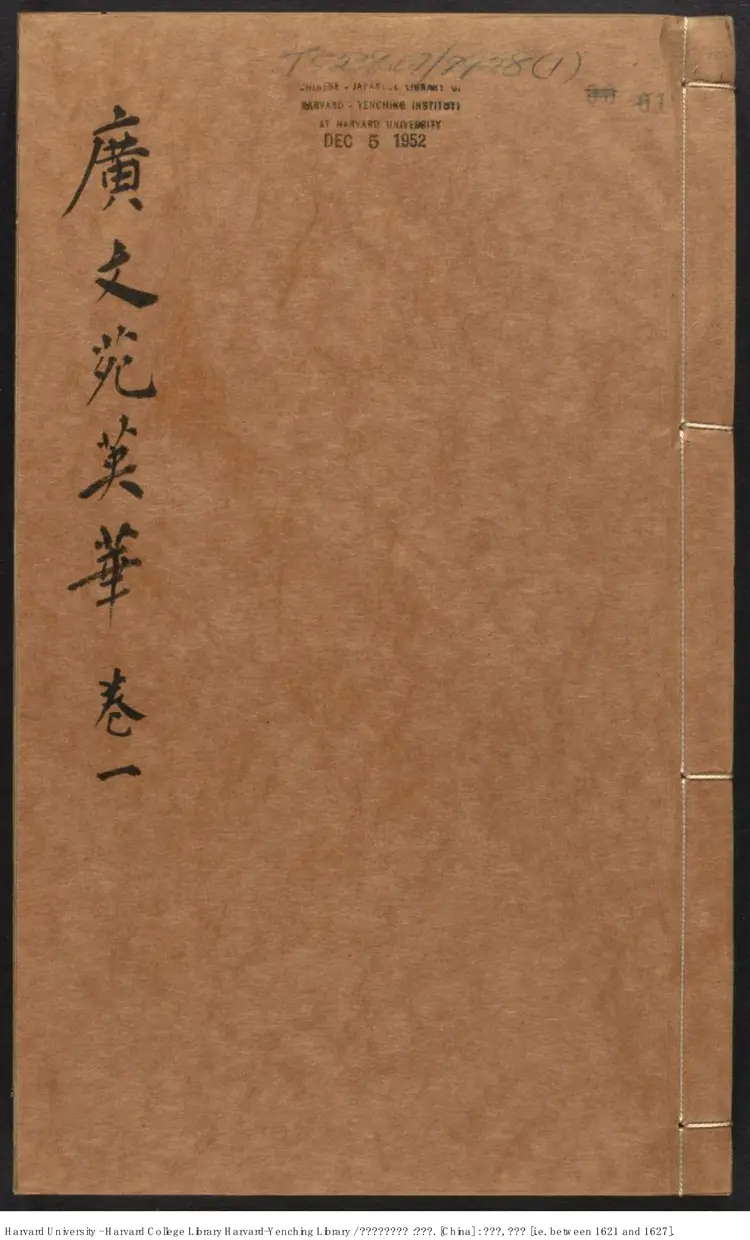 CHINESE - JAPANESE LIBRARY OF
HARVARD - YENCHING INSTITUTE
AT HARVARD UNIVERSITY
DEC 5 1952
廣文苑英華 卷一
Harvard University - Harvard College Library Harvard-Yenching Library / ???????? :???. [China] : ???, ??? [i.e. between 1621 and 1627].